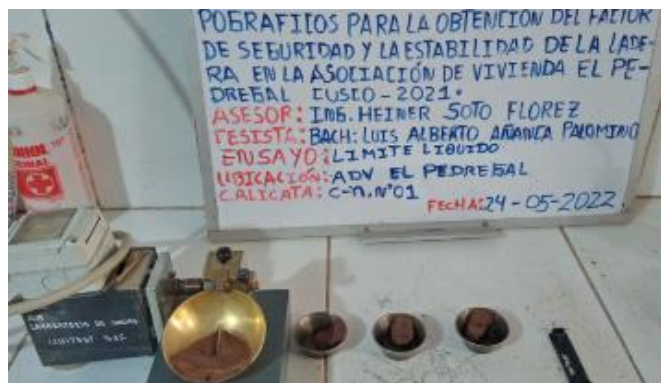 POGRAFICOS PARA LA OBTENCION DEL FACTOR
DE SEGURIDAD Y LA ESTABILIDAD DE LA LADE-
RA EN LA ASOCIACIÓN DE VIVIENDA EL PE-
DREGAL CUSCO - 2021.
ASESOR: ING. HEINER SOTO FLOREZ
TESISTA: BACH: LUIS ALBERTO AÑANCA PALOMINO
ENSAYO: LIMITE LIQUIDO
UBICACION: ADV EL PEDREGAL
CALICATA: C-M.N°01
FECHA: 24-05-2022
LABORATORIO DE